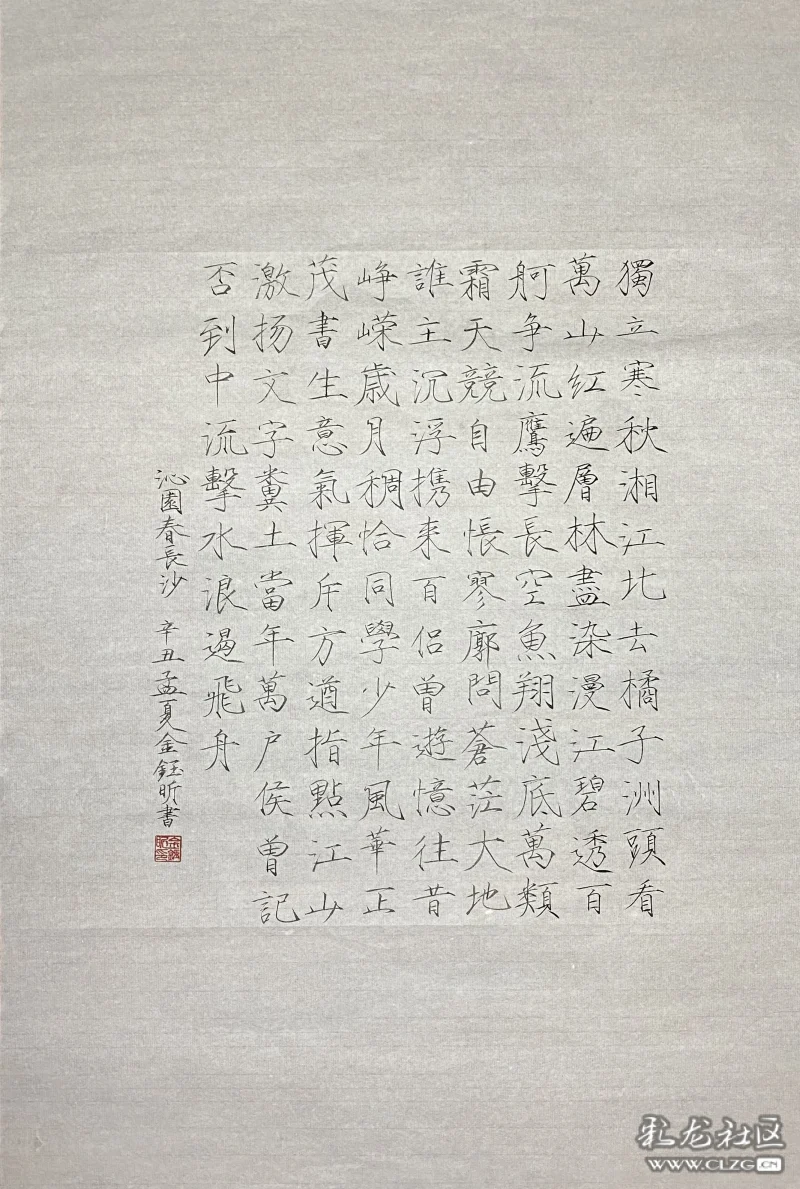 獨立寒秋湘江北去橘子洲頭看
萬山紅遍層林盡染漫江碧透百
舸争流鷹擊長空魚翔淺底萬類
霜天競自由悵寥廓問蒼茫大地
誰主沉浮携来百侣曾遊憶往昔
峥嵘歲月稠恰同學少年風華正
茂書生意氣揮斥方遒指點江山
激扬文字糞土當年萬户侯曾記
否到中流擊水浪遏飛舟
沁園春長沙 辛丑孟夏金鈺昕書
彩龙社区
WWW.CLZG.CN